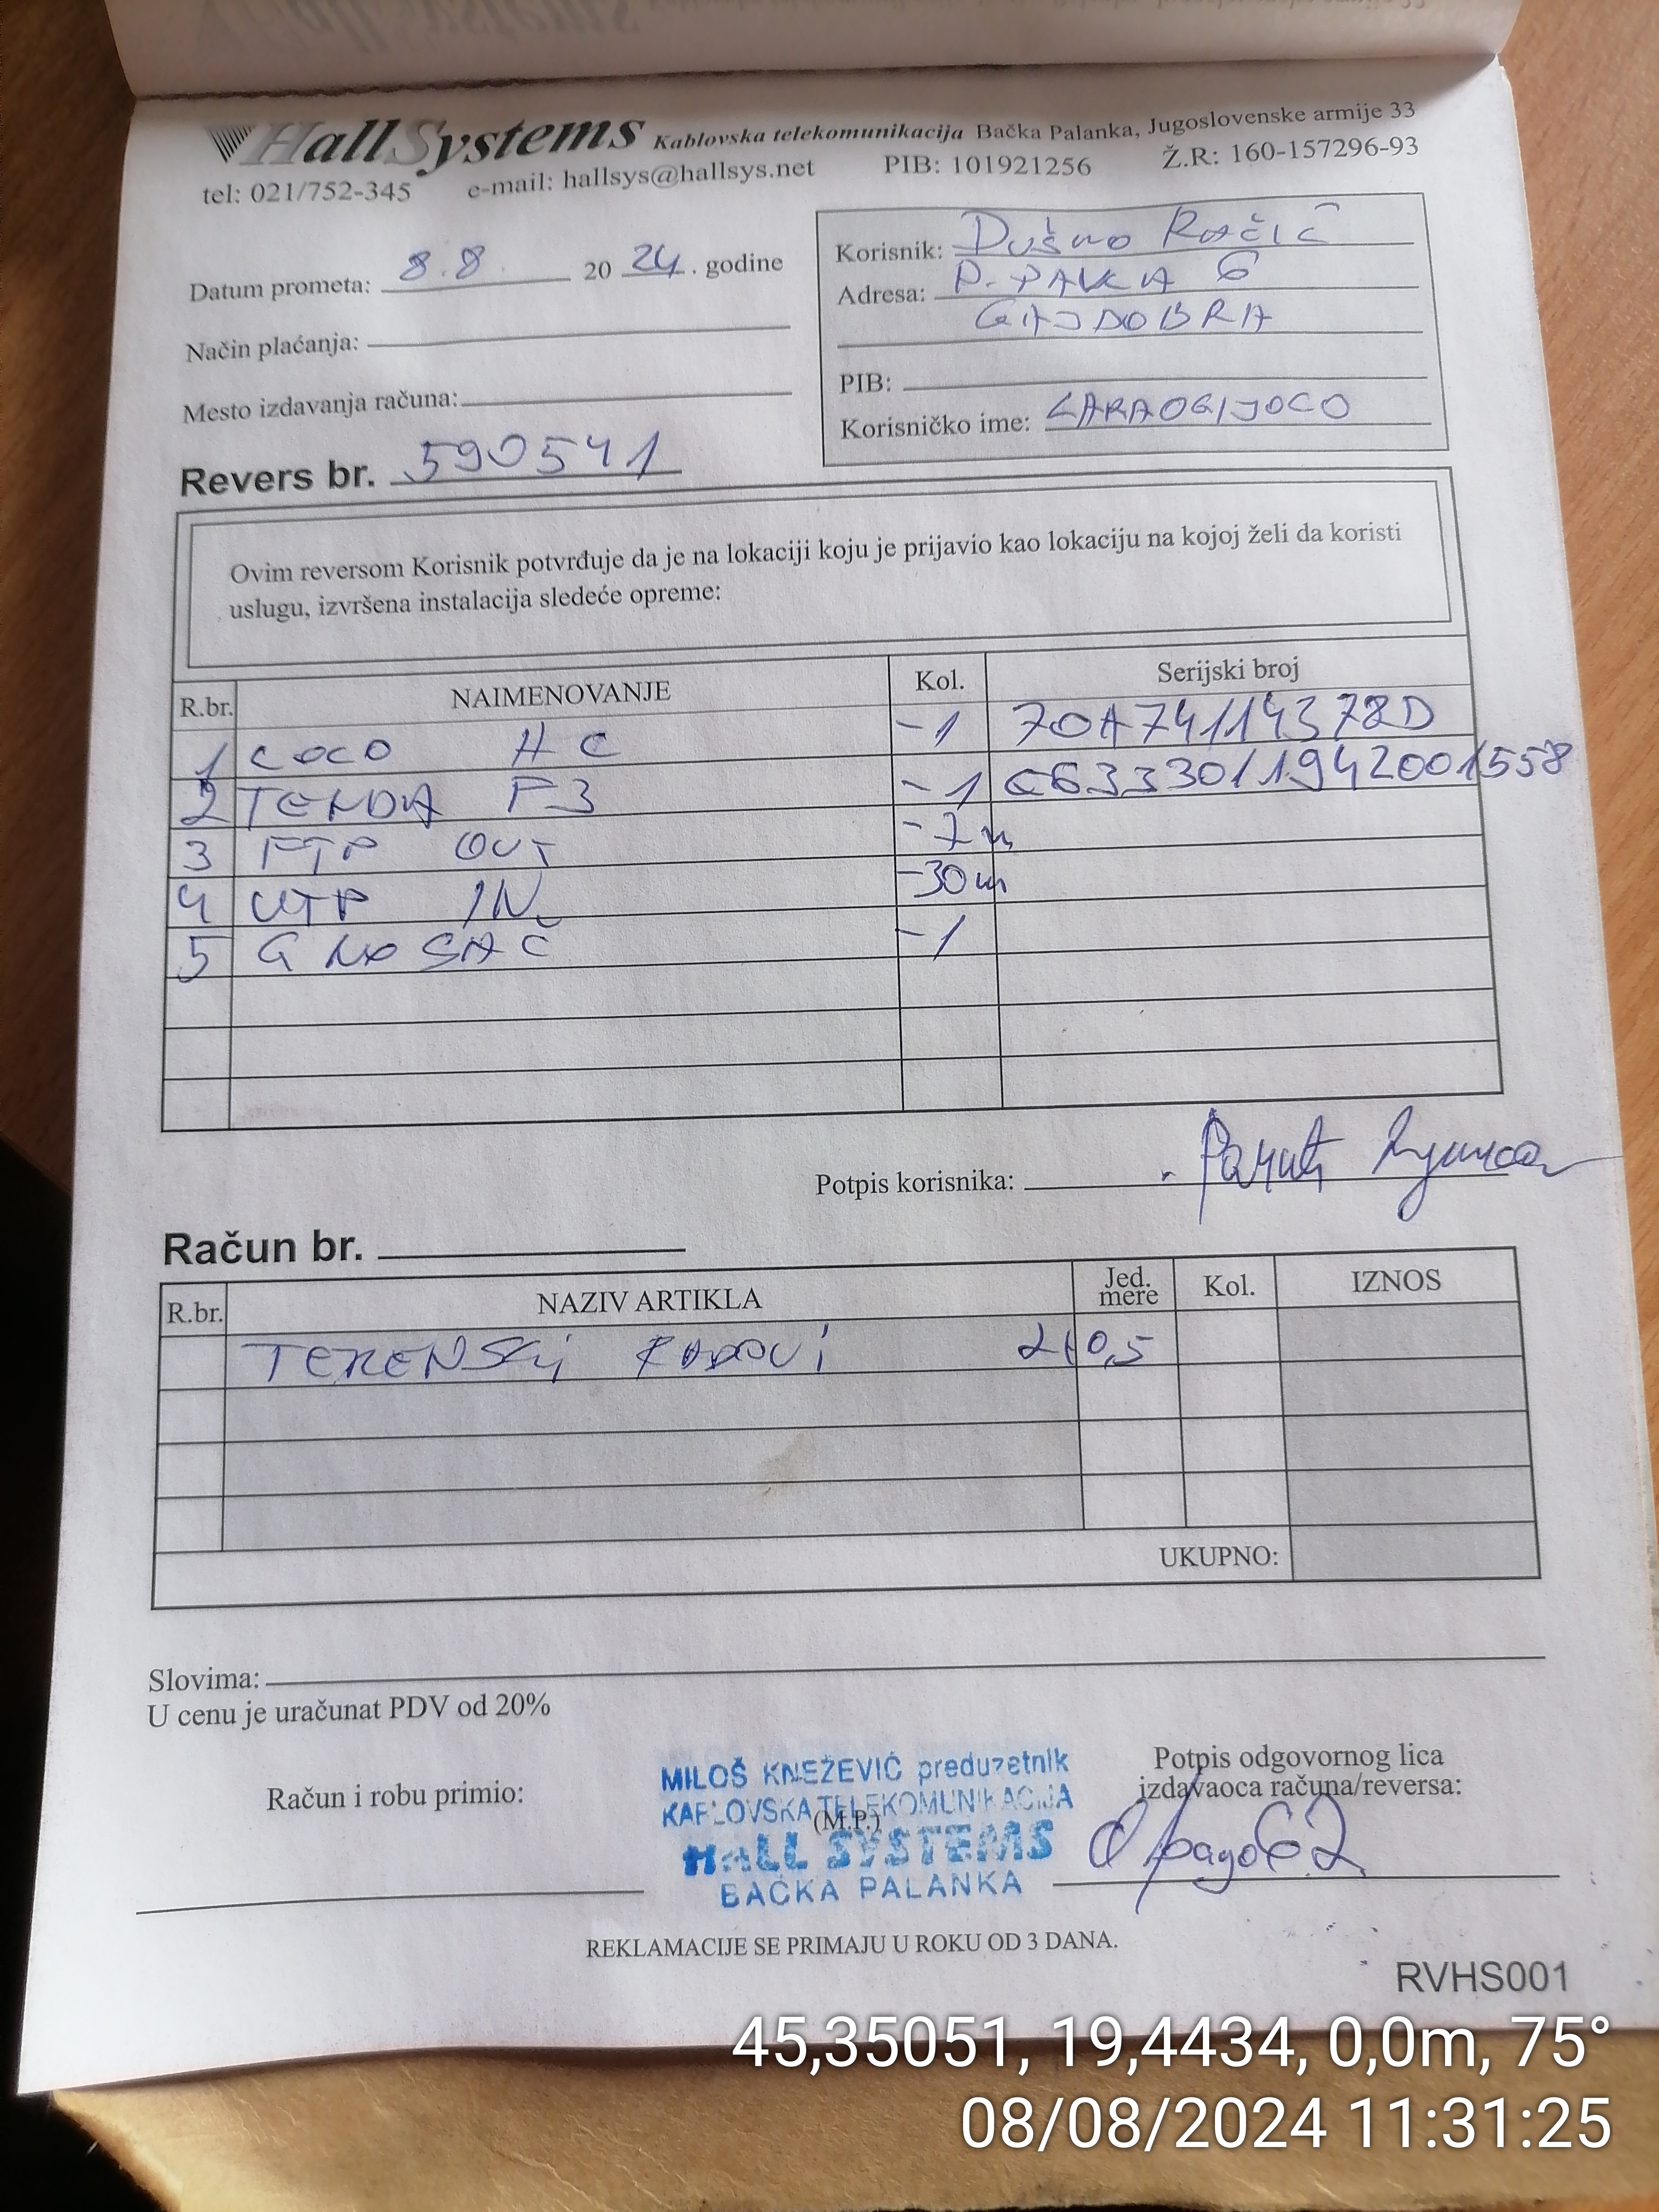 HallSystems Kablovska telekomunikacija Bačka Palanka, Jugoslovenske armije 33
tel: 021/752-345 e-mail: hallsys@hallsys.net PIB: 101921256 Ž.R: 160-157296-93
Datum prometa: 8.8. 20 24. godine
Način plaćanja:
Mesto izdavanja računa:
Revers br. 590541
Korisnik: Dušno Račić
Adresa: P. PAVKA 6
GAJDOBRA
PIB:
Korisničko ime: CARAOGIJOCO
Ovim reversom Korisnik potvrđuje da je na lokaciji koju je prijavio kao lokaciju na kojoj želi da koristi
uslugu, izvršena instalacija sledeće opreme:
R.br. NAIMENOVANJE Kol. Serijski broj
1 COCO HC -1 70A74114378D
2 TENDA F3 -1 E6333011942001558
3 FTP OUT -7m
4 UTP IN -30m
5 G NOSAČ -1
Potpis korisnika:
Račun br.
R.br. NAZIV ARTIKLA Jed. mere Kol. IZNOS
TERENSKI RADOVI 2H0,5
UKUPNO:
Slovima:
U cenu je uračunat PDV od 20%
Račun i robu primio:
MILOŠ KNEŽEVIĆ preduzetnik
KABLOVSKA TELEKOMUNIKACIJA
(M.P.)
HALL SYSTEMS
BAČKA PALANKA
Potpis odgovornog lica
izdavaoca računa/reversa:
REKLAMACIJE SE PRIMAJU U ROKU OD 3 DANA.
RVHS001
45,35051, 19,4434, 0,0m, 75°
08/08/2024 11:31:25